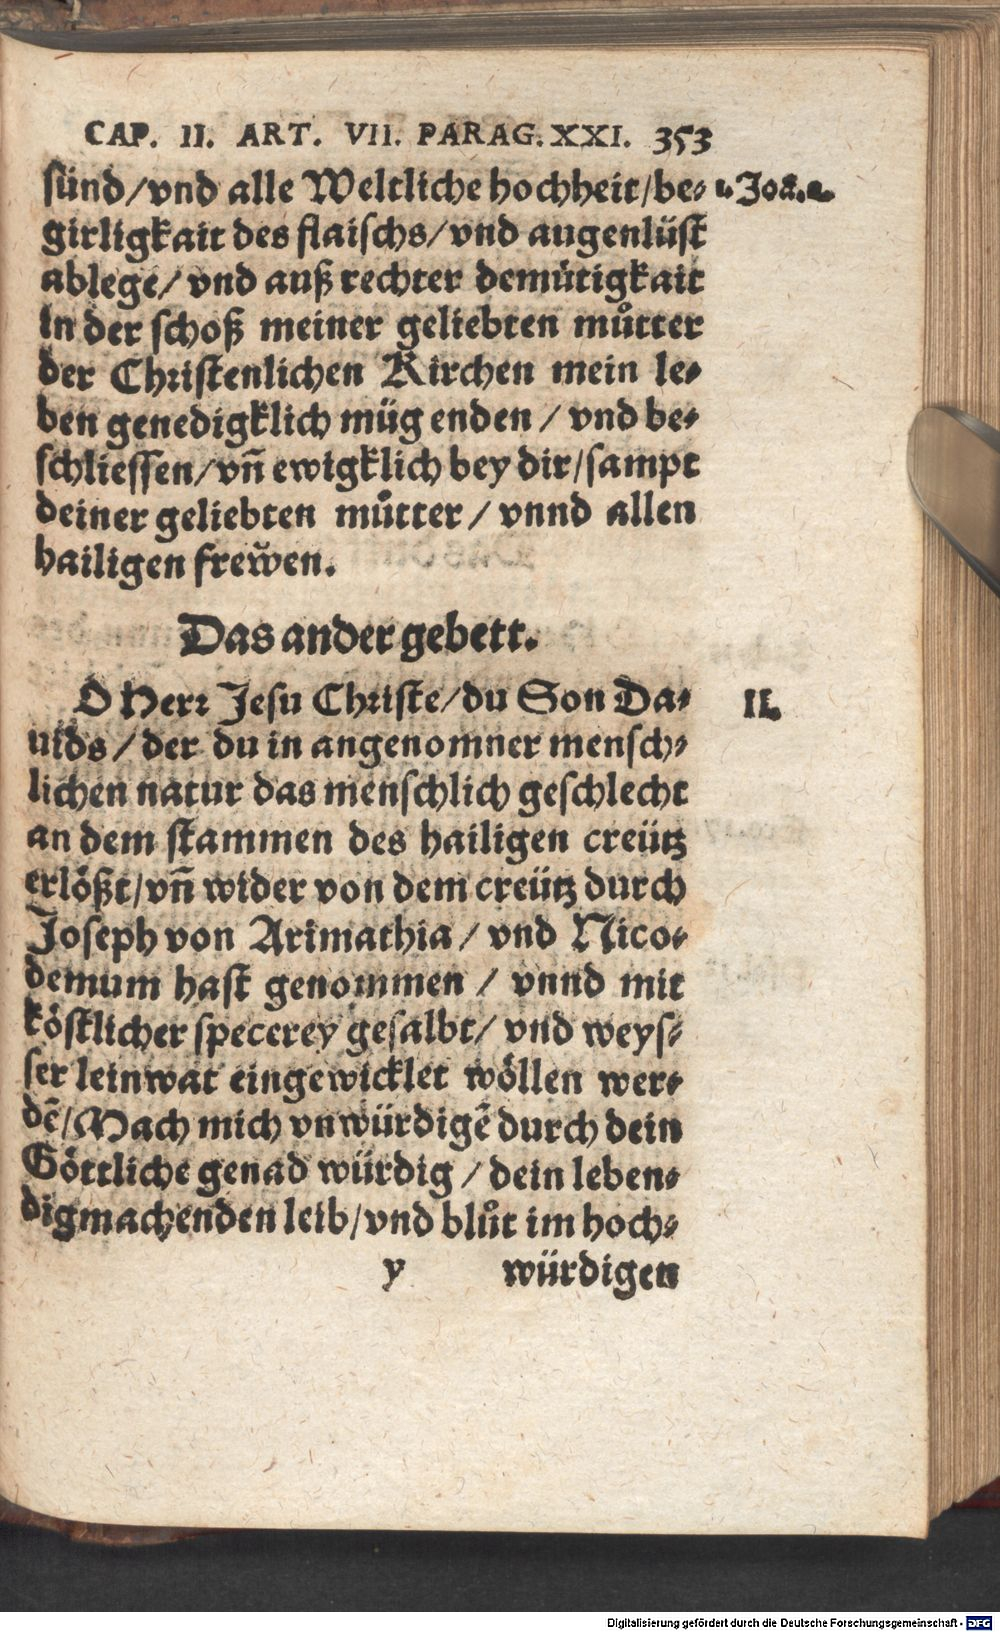 CAP. II. ART. VII. PARAG. XXI. 353
sünd/vnd alle Weltliche hochheit/be- 1. Joã. 2.
girligkait des flaischs/vnd augenlüst
ablege/ vnd auß rechter demütigkait
in der schoß meiner geliebten můtter
der Christenlichen Kirchen mein le-
ben genedigklich müg enden / vnd be-
schliessen/vñ ewigklich bey dir/sampt
deiner geliebten můtter / vnnd allen
hailigen frew̃en.
Das ander gebett.
O Herr Jesu Christe/du Son Da- II.
uids / der du in angenomner mensch-
lichen natur das menschlich geschlecht
an dem stammen des hailigen creütz
erlößt/vñ wider von dem creütz durch
Joseph von Arimathia / vnd Nico-
demum hast genommen / vnnd mit
köstlicher specerey gesalbt/ vnd weys-
ser leinwat eingewicklet wöllen wer-
dẽ/Mach mich vnwürdigẽ durch dein
Göttliche genad würdig / dein leben-
digmachenden leib/vnd blůt im hoch-
y würdigen
Digitalisierung gefördert durch die Deutsche Forschungsgemeinschaft - DFG